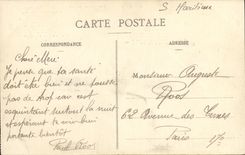 S Maritime
CARTE POSTALE
CORRESPONDANCE
ADRESSE
Cher Meri
Je pense que ta santé
doit être bien et ne pousse
pas de trop car est
surtout la nuit
et espérant te voir bien
portante bientôt
Monsieur Auguste
62 Avenue des Ternes
Paris 17e